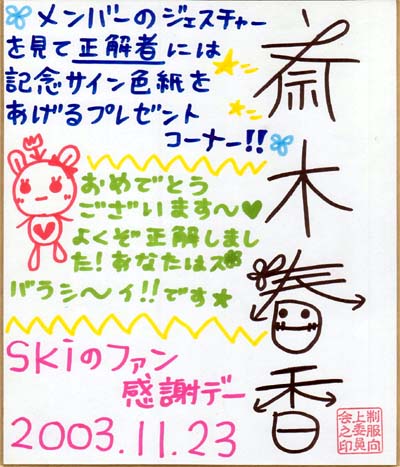 メンバーのジェスチャー
を見て正解者には
記念サイン色紙を
あげるプレゼント
コーナー!!
おめでとう
ございます〜♥
よくぞ正解しまし
た!あなたはス
バラシ〜イ!!です★
SKiのファン
感謝デー
2003.11.23
斎木春香
制服向
上委員
会之印